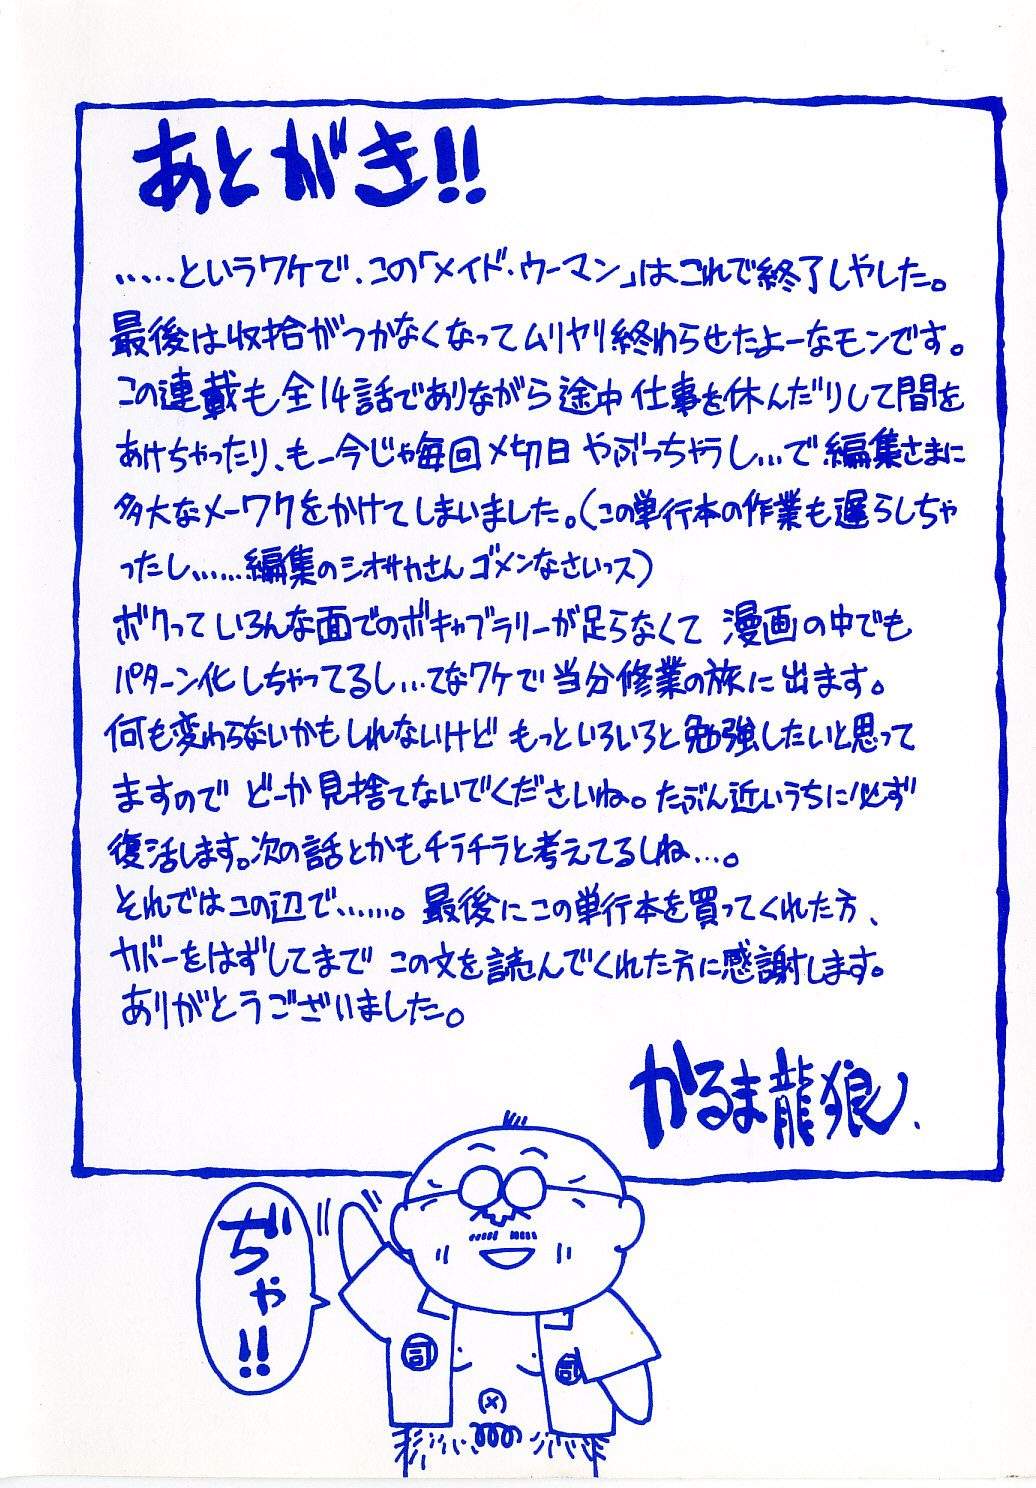 あとがき!!
……というワケで、この「メイド・ウーマン」はこれで終了しやした。
最後は収拾がつかなくなってムリヤリ終わらせたよーなモンです。
この連載も全14話でありながら途中仕事を休んだりして間を
あけちゃったり、もー今じゃ毎回〆切日やぶっちゃうし…で編集さまに
多大なメーワクをかけてしまいました。(この単行本の作業も遅らしちゃ
ったし……編集のシオサカさんゴメンなさいっス)
ボクっていろんな面でのボキャブラリーが足らなくて漫画の中でも
パターン化しちゃってるし…てなワケで当分修業の旅に出ます。
何も変わらないかもしれないけどもっといろいろと勉強したいと思って
ますのでどーか見捨てないでくださいね。たぶん近いうちに必ず
復活します。次の話とかもチラチラと考えてるしね…。
それではこの辺で……。最後にこの単行本を買ってくれた方、
カバーをはずしてまでこの文を読んでくれた方に感謝します。
ありがとうございました。
かるま龍狼
ぢゃ!!
司
司